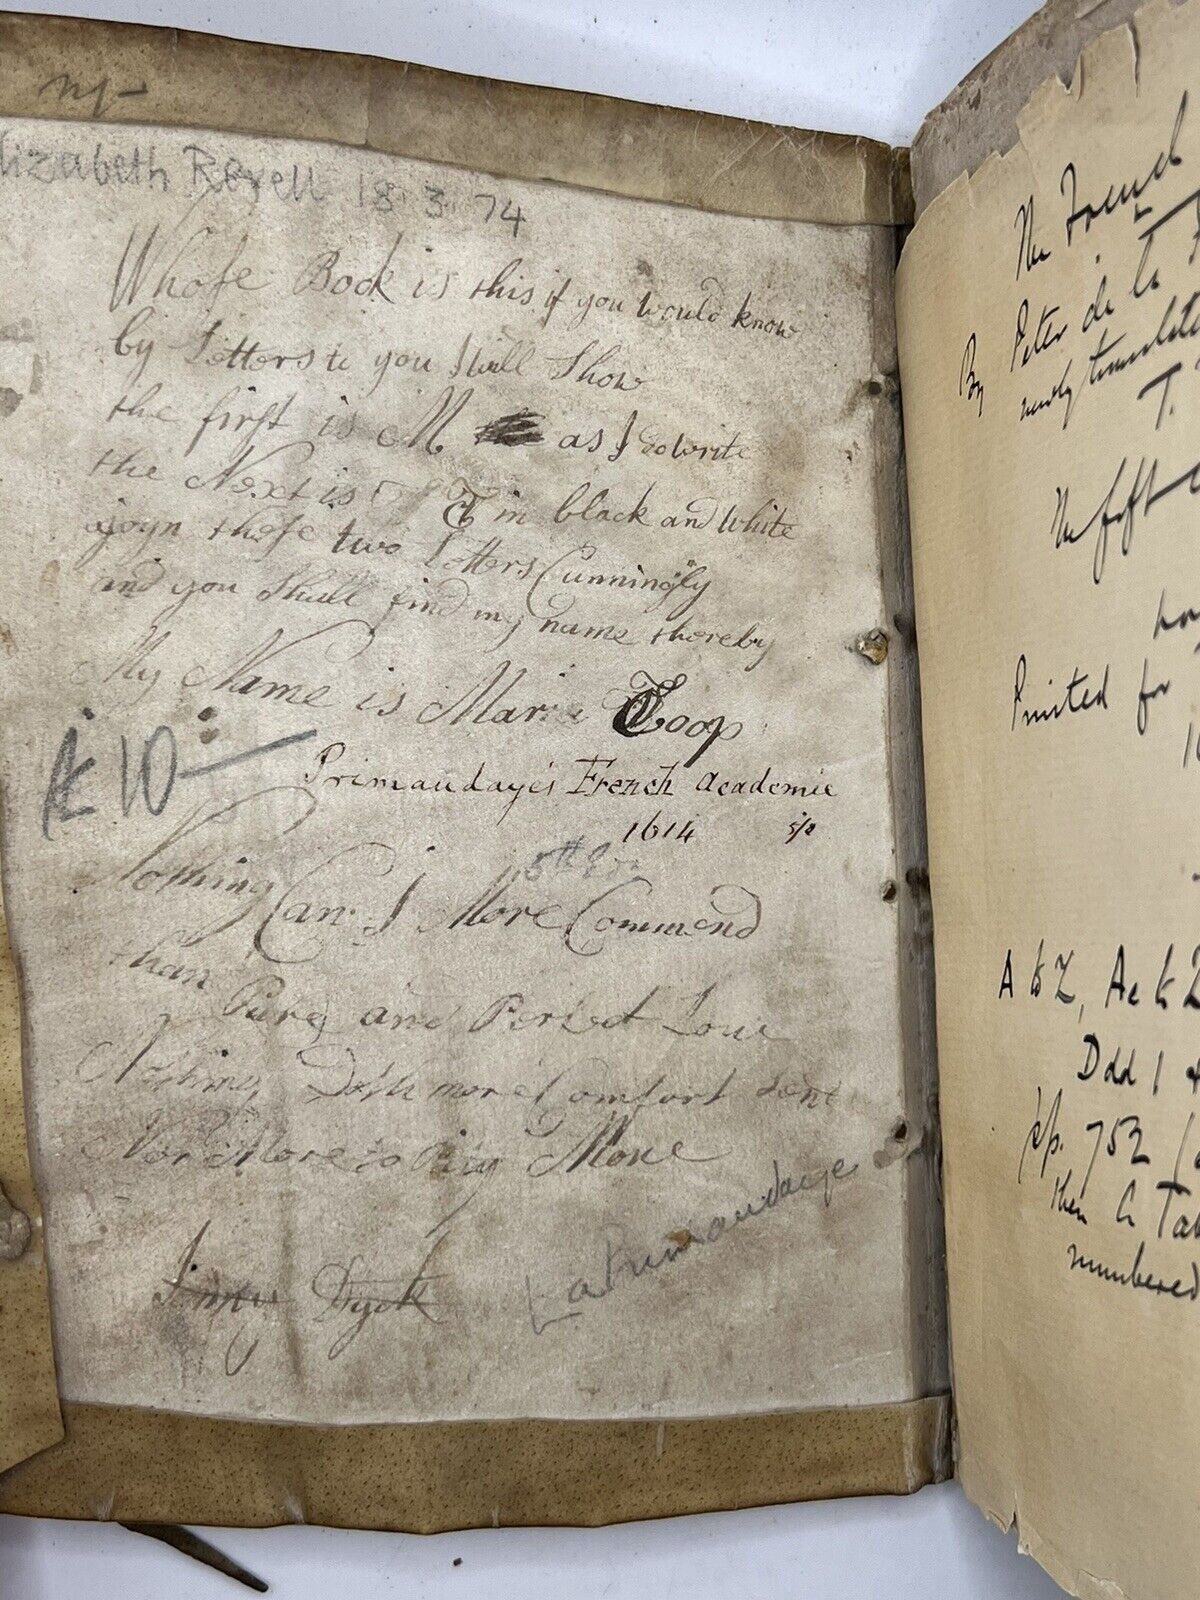 Elizabeth Revell 18 3 74
Whose Book is this if you would know
by Letters to you I will Show
the first is M as I do write
the Next is T in black and White
ajoyn those two Letters Cunningly
and you Shall find my name thereby
My Name is Marie Toop
£10-
Primaudaye's French Academie
1614 5/2
Nothing Can I More Commend
than Pure and Perfect Loue
Nothing Doth more Comfort
Nor More to
Dyck
La Primaudaye
The French
By Peter de la
newly
T.
The
Printed for
A to Z, Aa to Z
Ddd 1
pp. 752
then a Tab
numbered